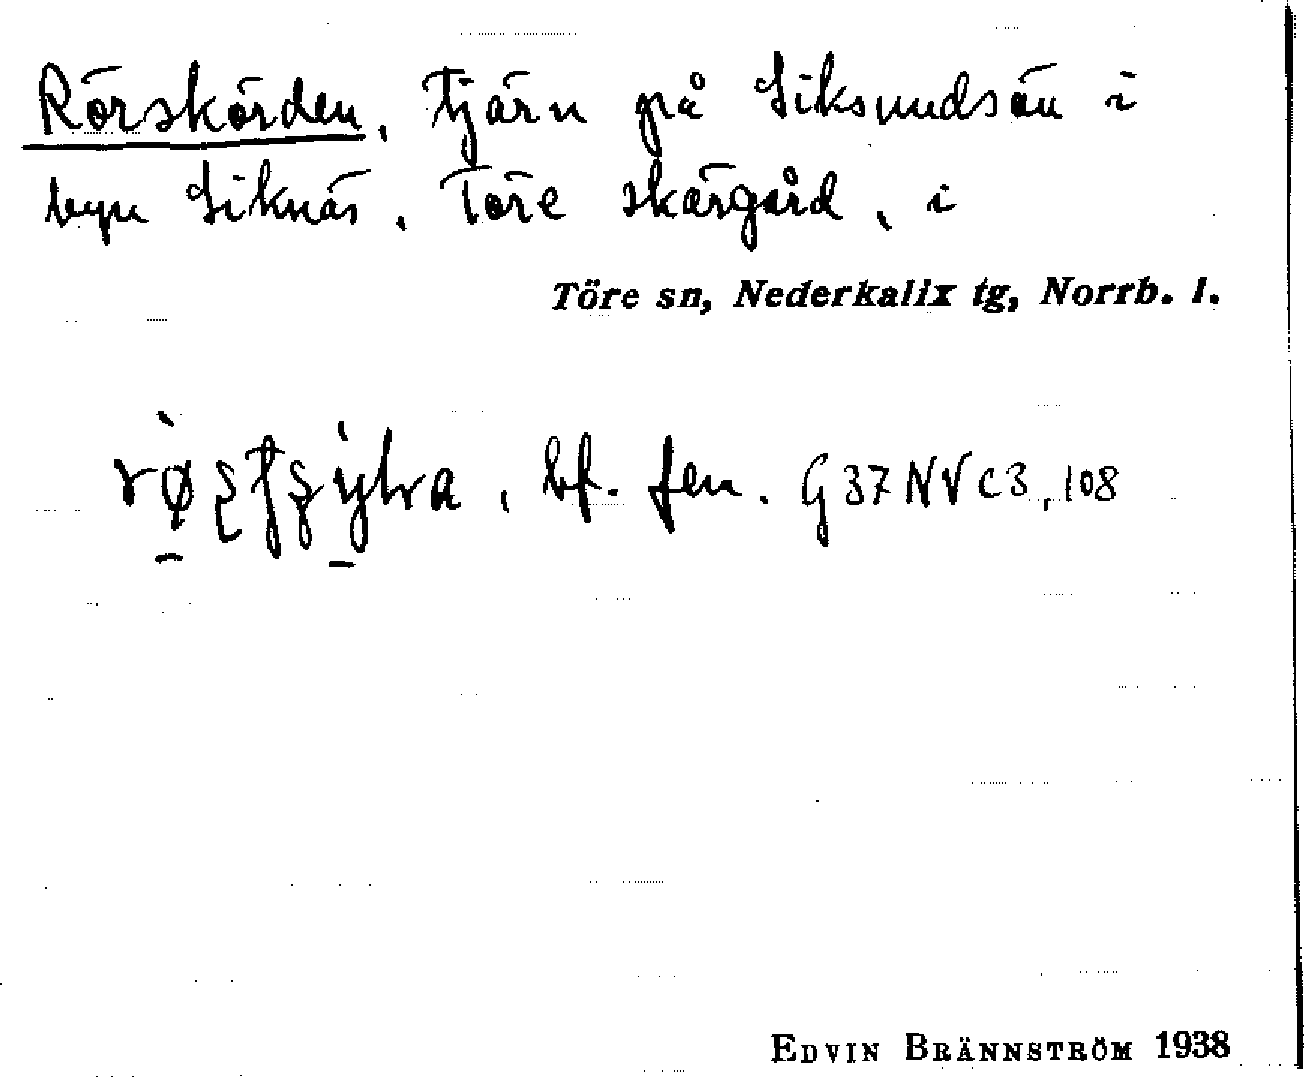 Rörskörden, tjärn på Siksundsön i
byn Siknäs, Töre skärgård, i
Töre sn, Nederkalix tg, Norrb. l.
bf. fen. G37NVc3,108
EDVIN BRÄNNSTRÖM 1938